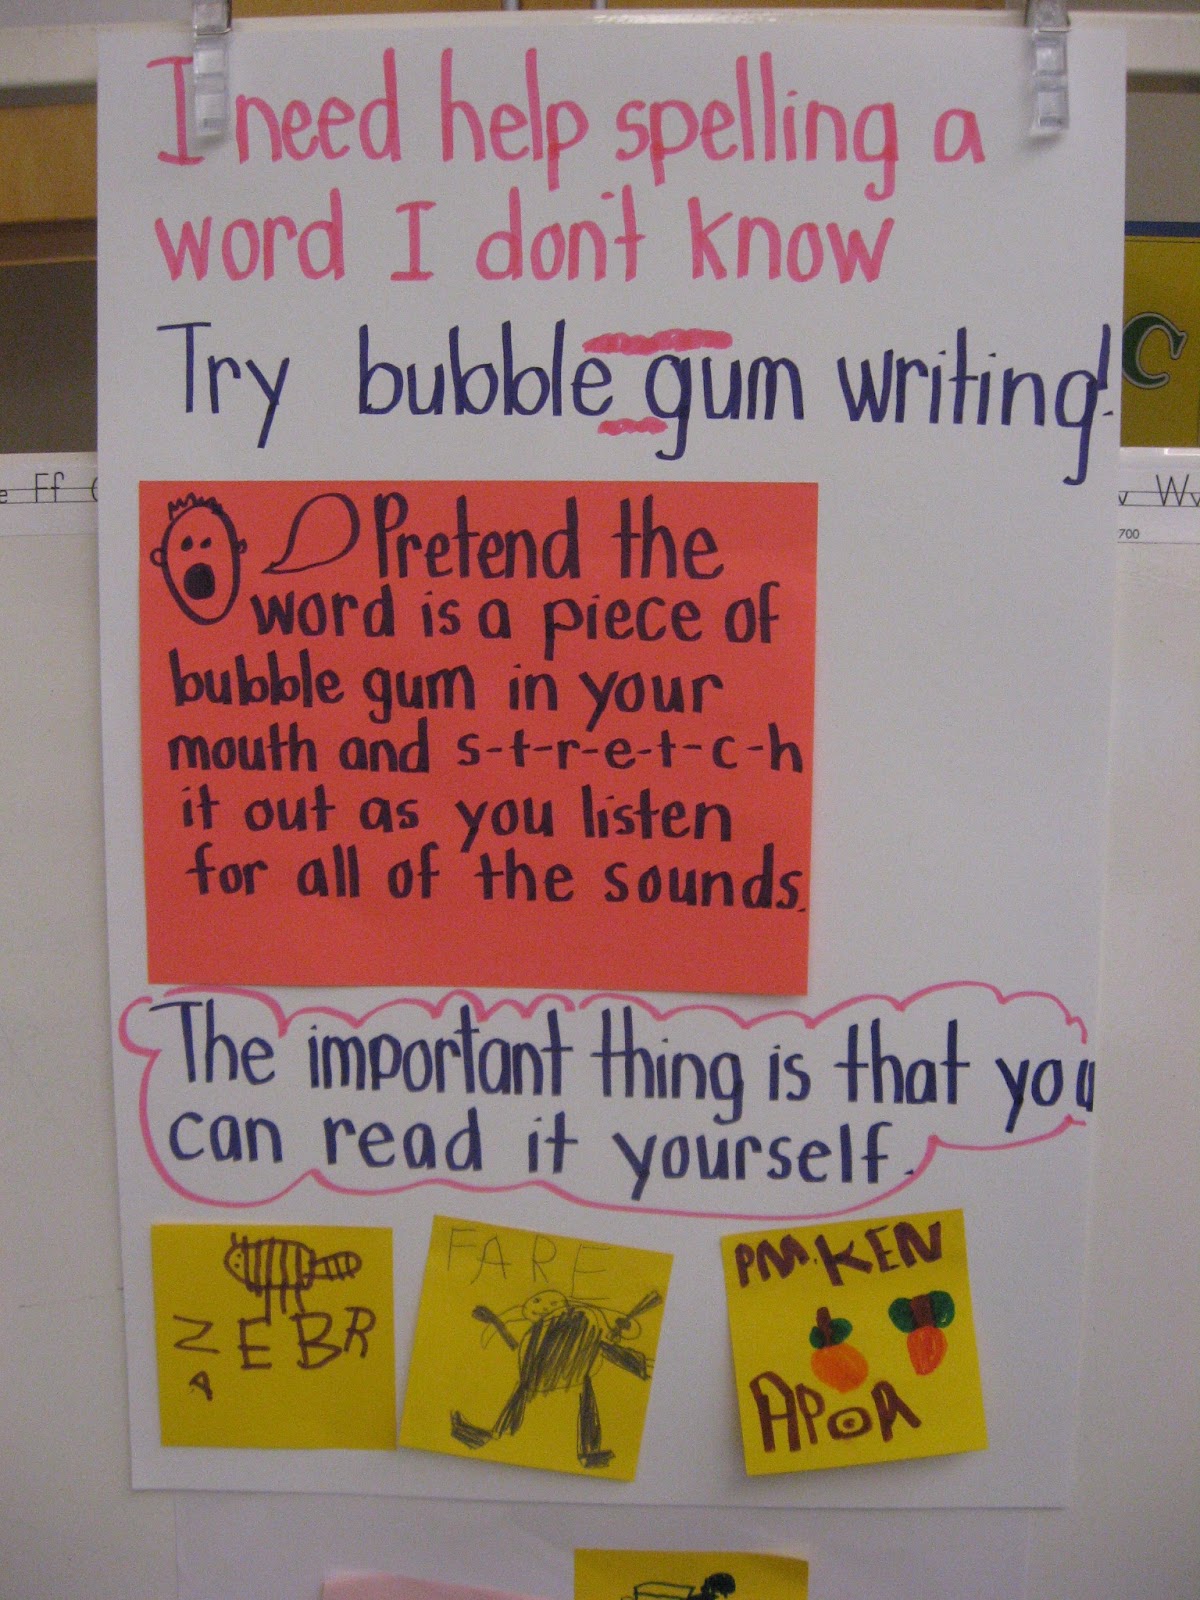 I need help spelling a
word I don't know
Try bubble gum writing!
Pretend the
word is a piece of
bubble gum in your
mouth and s-t-r-e-t-c-h
it out as you listen
for all of the sounds.
The important thing is that you
can read it yourself.
ZEBR
A
FARE
PMKEN
APOA
Ff
C
Ww
700